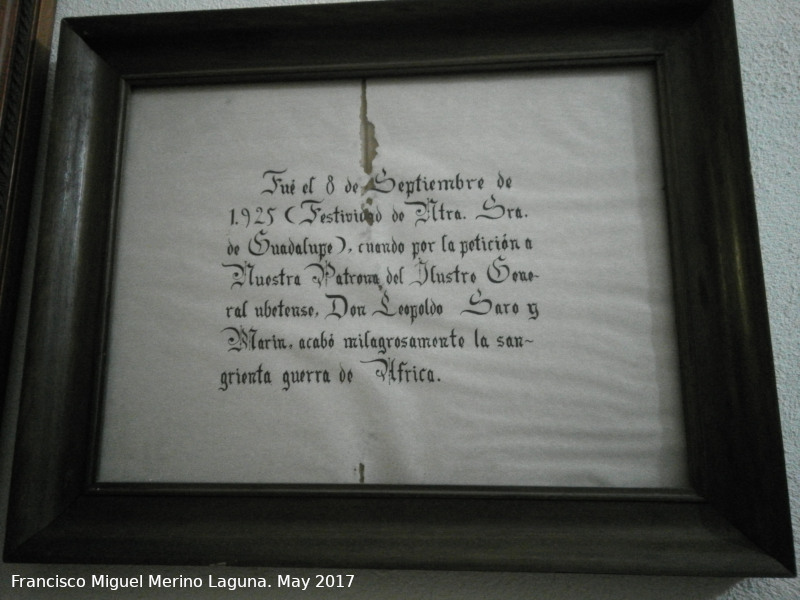 Fué el 8 de Septiembre de
1.925 (Festividad de Ntra. Sra.
de Guadalupe), cuando por la petición a
Nuestra Patrona del Ilustre Gene-
ral ubetense, Don Leopoldo Saro y
Marin, acabó milagrosamente la san-
grienta guerra de Africa.
Francisco Miguel Merino Laguna. May 2017